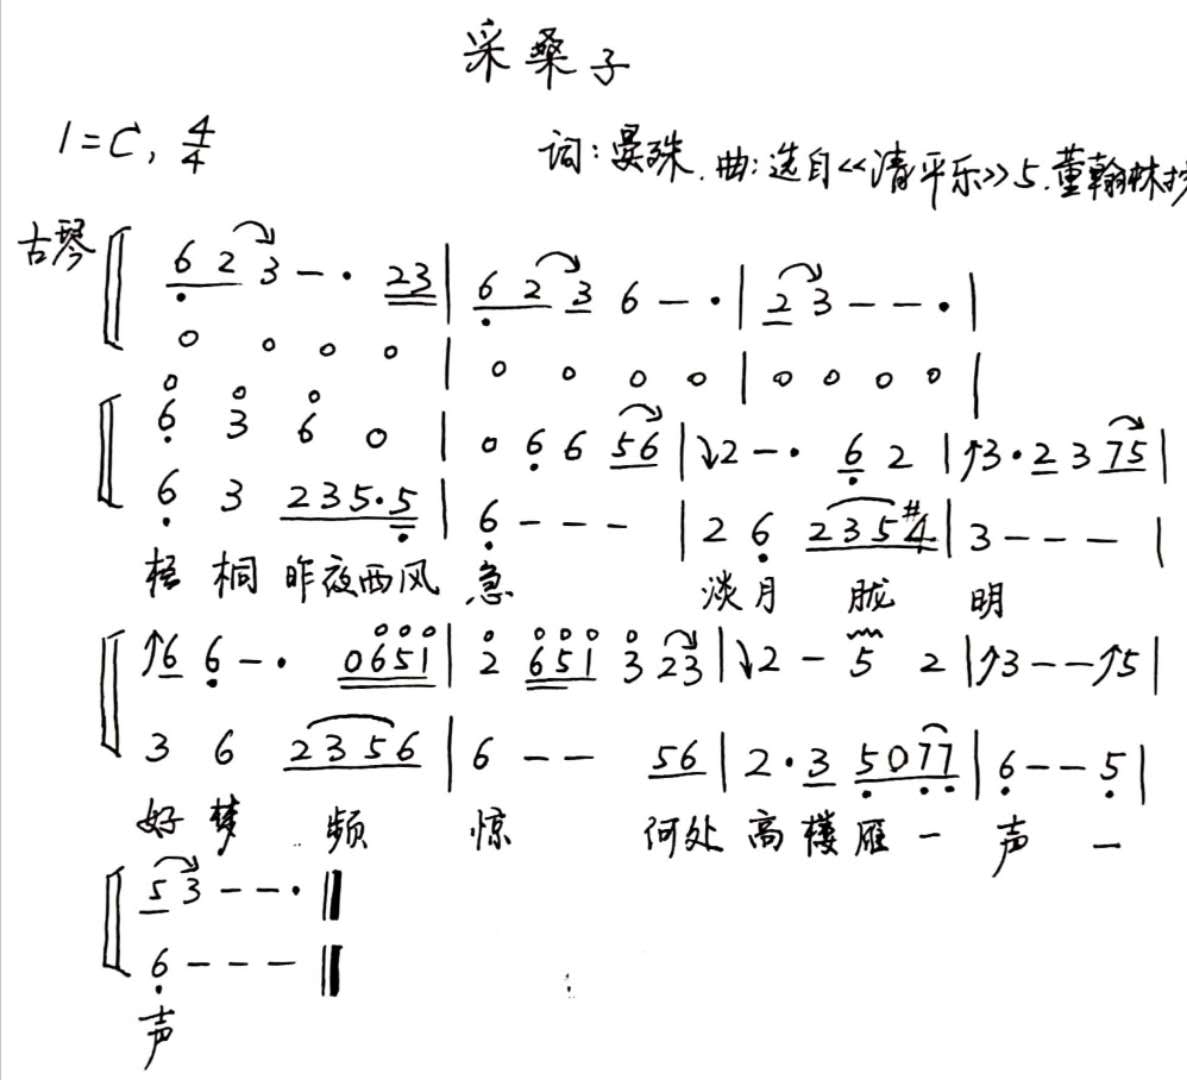 采桑子
1=C, 4/4
词:晏殊.曲:选自《清平乐》5.董翰林抄
古琴
6 2 3 - · 23 | 6 2 3 6 - · | 2 3 - - · |
0 0 0 0 | 0 0 0 0 | 0 0 0 0 |
6 3 6 0 | 0 6 6 56 | ↘2 - · 6 2 | ↗3 · 2 3 75 |
6 3 235·5 | 6 - - - | 2 6 235#4 | 3 - - - |
梧 桐 昨夜西风 急 淡月 胧 明
↗6 6 - · 0651 | 2 651 3 23 | ↘2 - 5 2 | ↗3 - - ↗5 |
3 6 2356 | 6 - - 56 | 2 · 3 5077 | 6 - - 5 |
好 梦 频 惊 何处 高楼雁 一 声 一
5 3 - - · ‖
6 - - - ‖
声